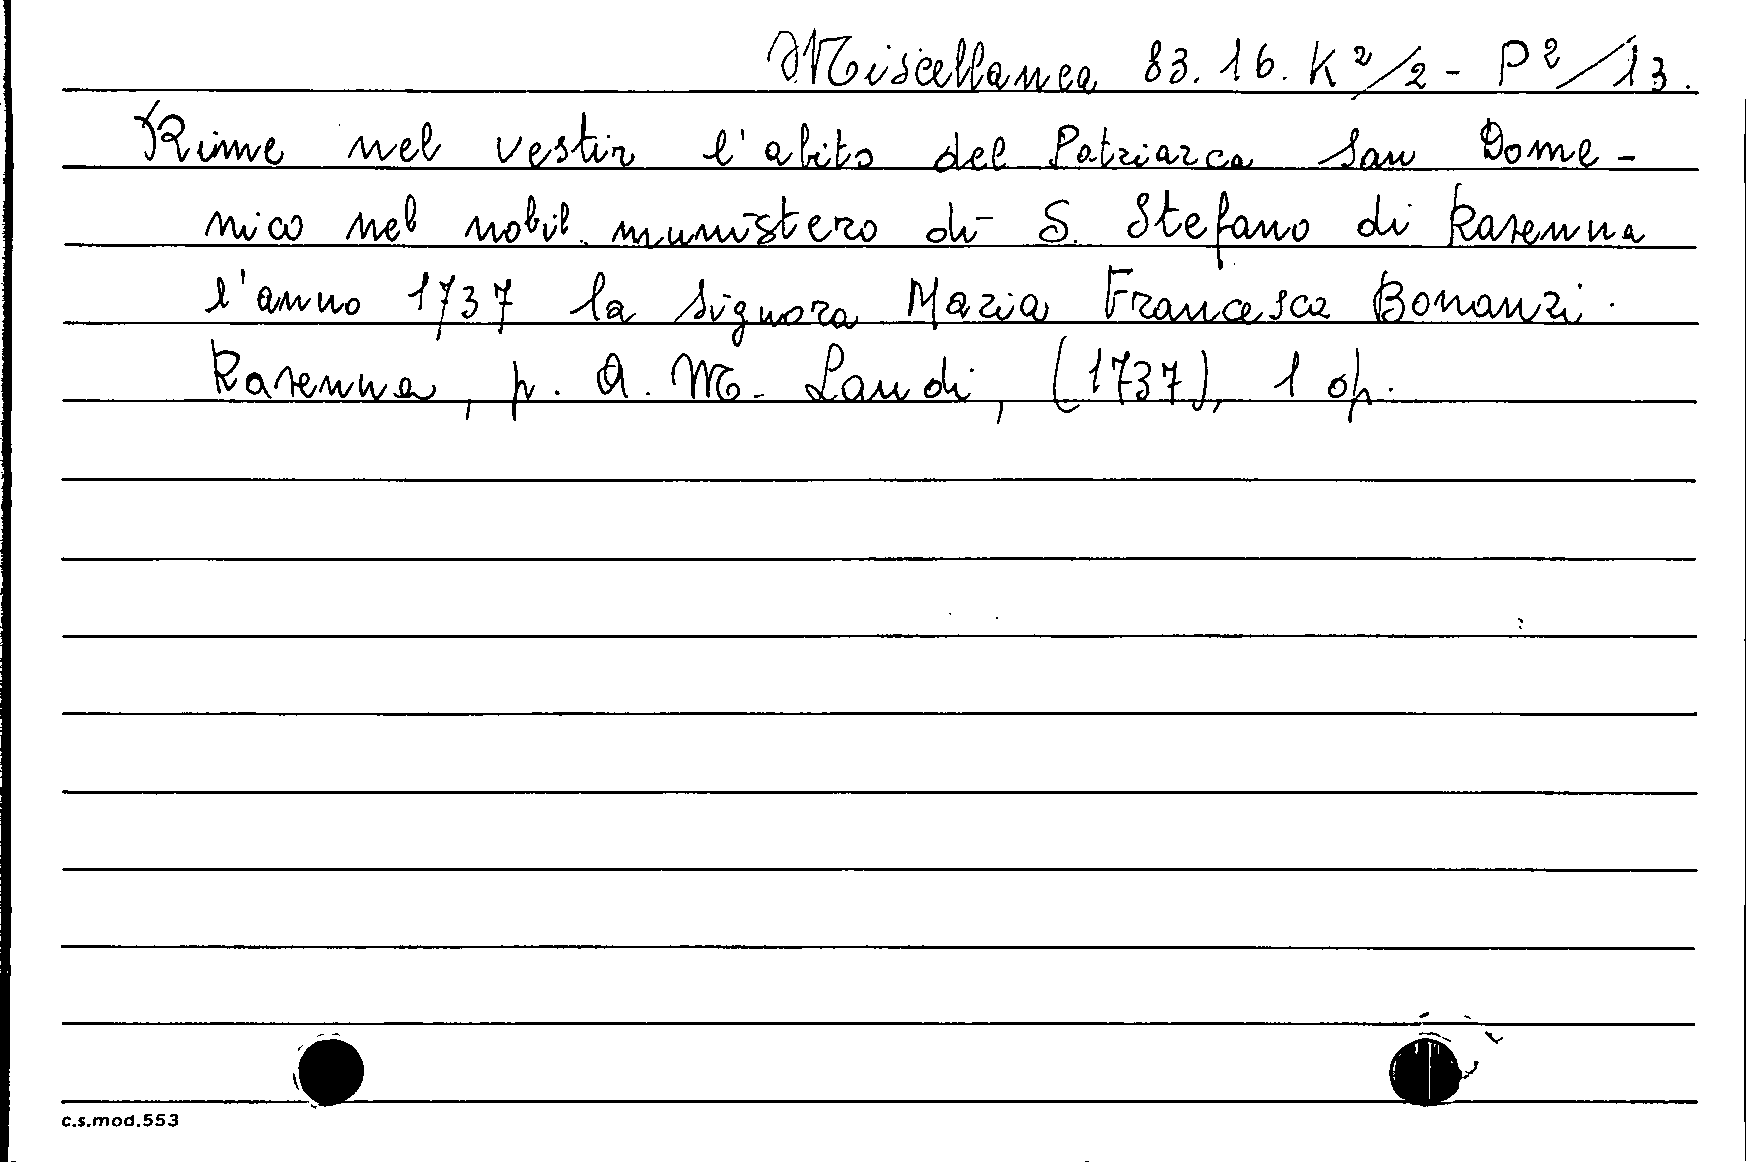 Miscellanea 83.16.K²/2 - P²/13.
Rime nel vestir l'abito del Patriarca San Dome-
nico nel nobil munistero di S. Stefano di Ravenna
l'anno 1737 la Signora Maria Francesca Bonanzi.
Ravenna, p. A. M. Landi, (1737), 1 op.
c.s.mod.553